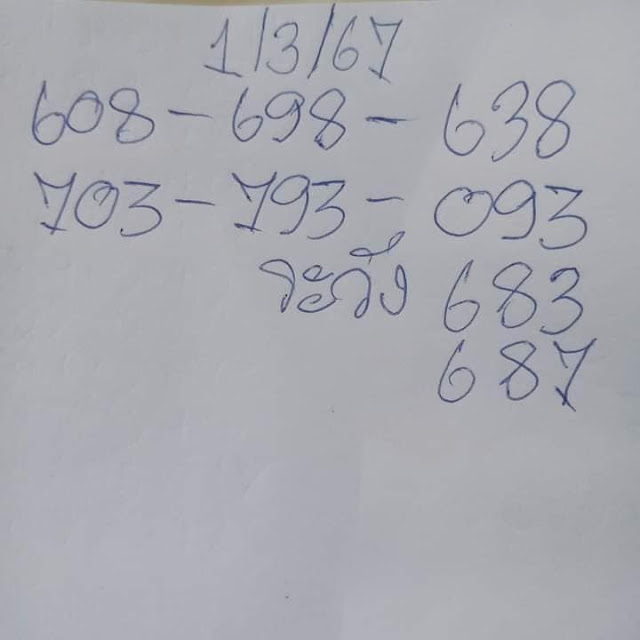 1/3/67
608 - 698 - 638
703 - 793 - 093
ระวัง 683
687